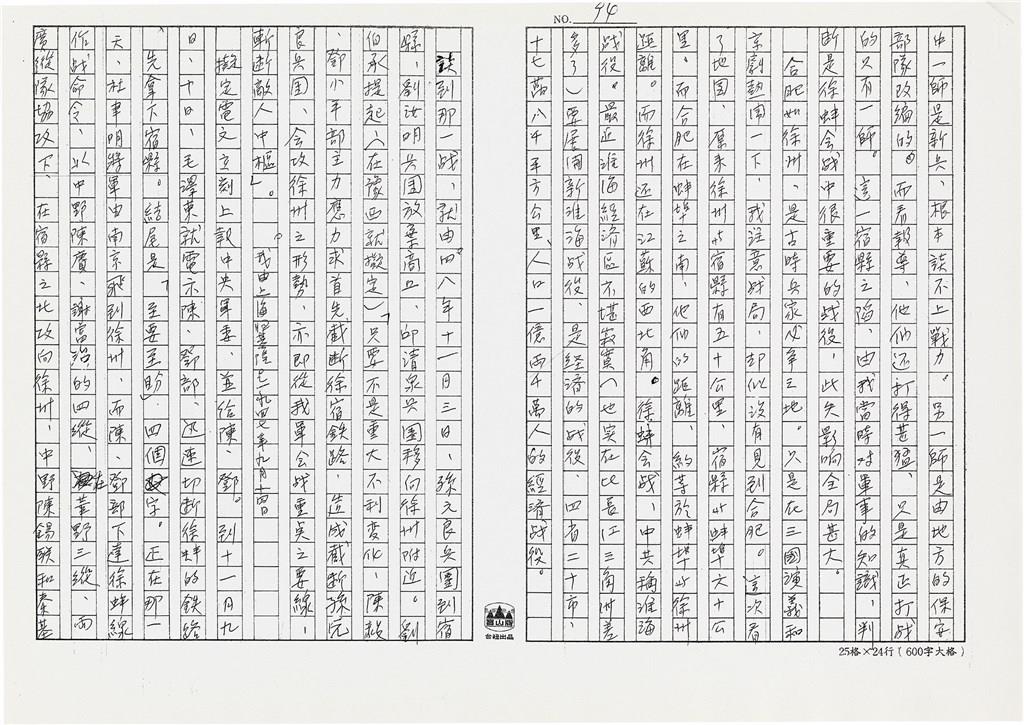 NO. 44
中一師是新兵、根本談不上戰力。另一師是由地方的保安
部隊改編的。而看報導、他們还打得甚猛、只是真正打战
的只有一師。這一宿縣之陷、由我當時对軍事的知識、判
断是徐蚌会战中很重要的战役，此失影响全局甚大。
合肥如徐州、是古時兵家必争之地。只是在三國演義和
京劇熱鬧一下、我注意战局、却似没有見到合肥。這次看
了地圖、原来徐州与宿縣有五十公里、宿縣与蚌埠六十公
里。而合肥在蚌埠之南、他们的距離、約等於蚌埠与徐州
距離。而徐州还在江苏的西北角。徐蚌会战、中共稱淮海
战役。最近淮海經済區不堪寂寞（也实在比長江三角洲差
多了）要展開新淮海战役、是经済的战役、四省二十市、
十七點八4平方公里、人口一億兩4萬人的經済战役。
談到那一战、就由四八年十一月三日、孫元良兵團到宿
縣、劉汝明兵囯放棄商丘、邱清泉兵團移向徐州附近。劉
伯承提起（在豫西就擬定）「只要不是重大不利变化、陳毅
、鄧小平部主力應力求首先截断徐宿鉄路、造成截断孫元
良兵囯、会攻徐州之形勢、亦即從我軍会战重点之要線，
斬断敵人中樞」。
擬定電文立刻上報中央軍委、並给陳、鄧。到十一月九
日、十日、毛澤東就電示陳、鄧部、迅速切断徐蚌的鉄路
先拿下宿縣。結尾是「至要至盼」四個字。正在那一
天、杜聿明将軍由南京飛到徐州、而陳、鄧部下達徐蚌線
作战命令、以中野陳賡、謝富治的四縱、在華野三縱、两
廣縱隊協攻下、在宿縣之北攻向徐州、中野陳錫联和秦基
台紐出品
25格×24行（600字大格）